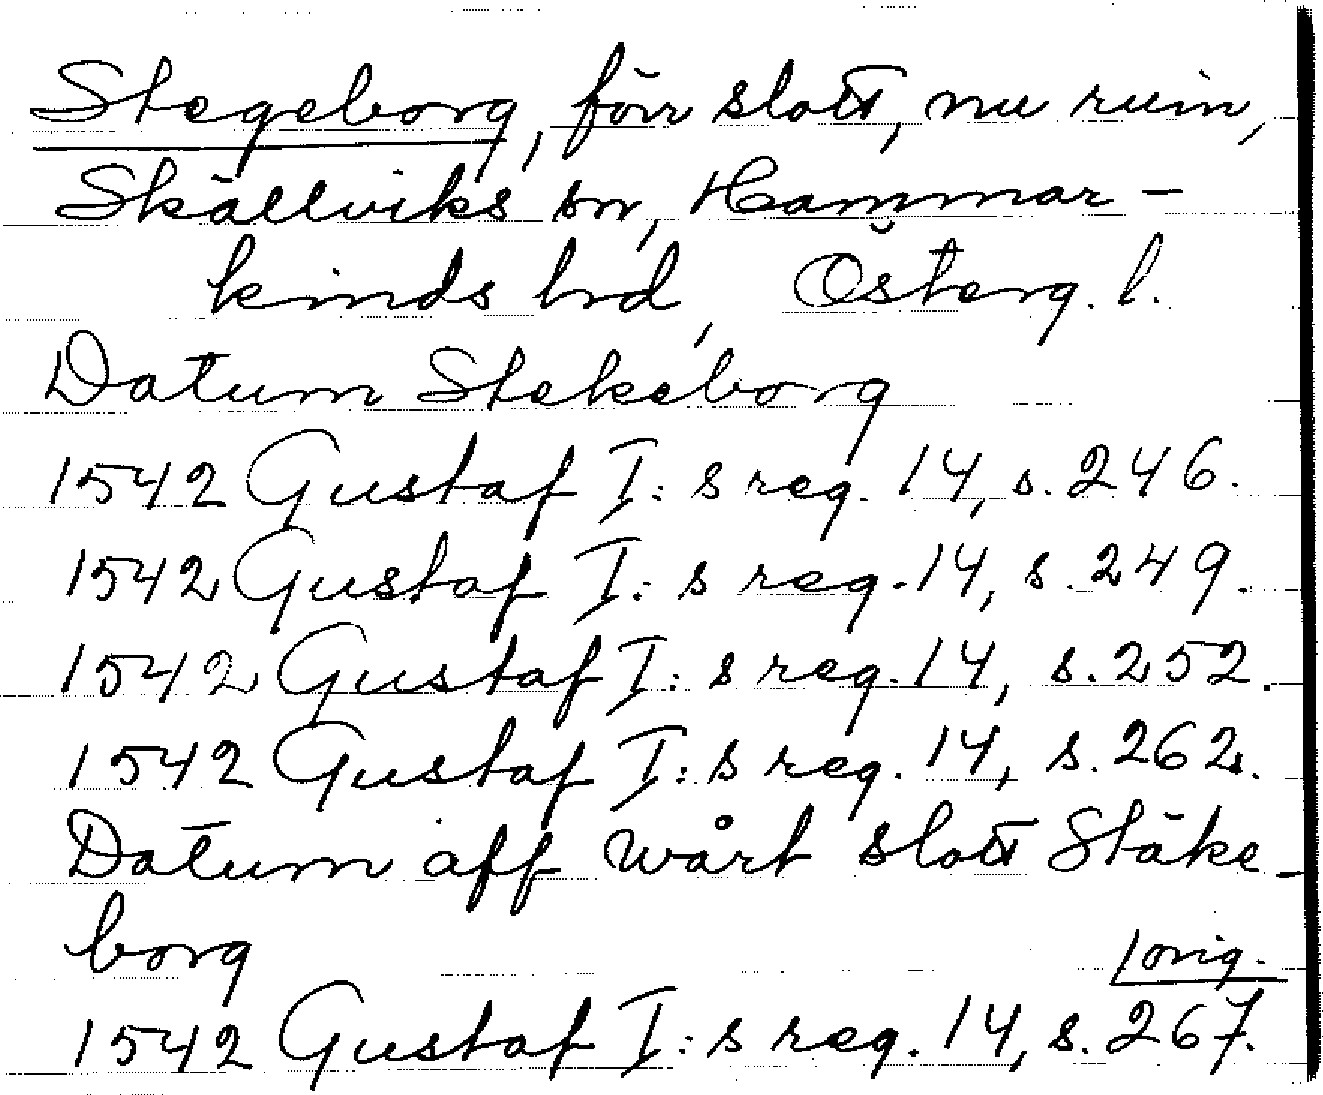 Stegeborg, förr slott, nu ruin,
Skällviks sn, Hammar-
kinds hd, Österg. l.
Datum Stekeborg
1542 Gustaf I:s reg. 14, s. 246.
1542 Gustaf I:s reg. 14, s. 249.
1542 Gustaf I:s reg. 14, s. 252.
1542 Gustaf I:s reg. 14, s. 262.
Datum aff wårt slott Stäke-
borg
/orig.
1542 Gustaf I:s reg. 14, s. 267.